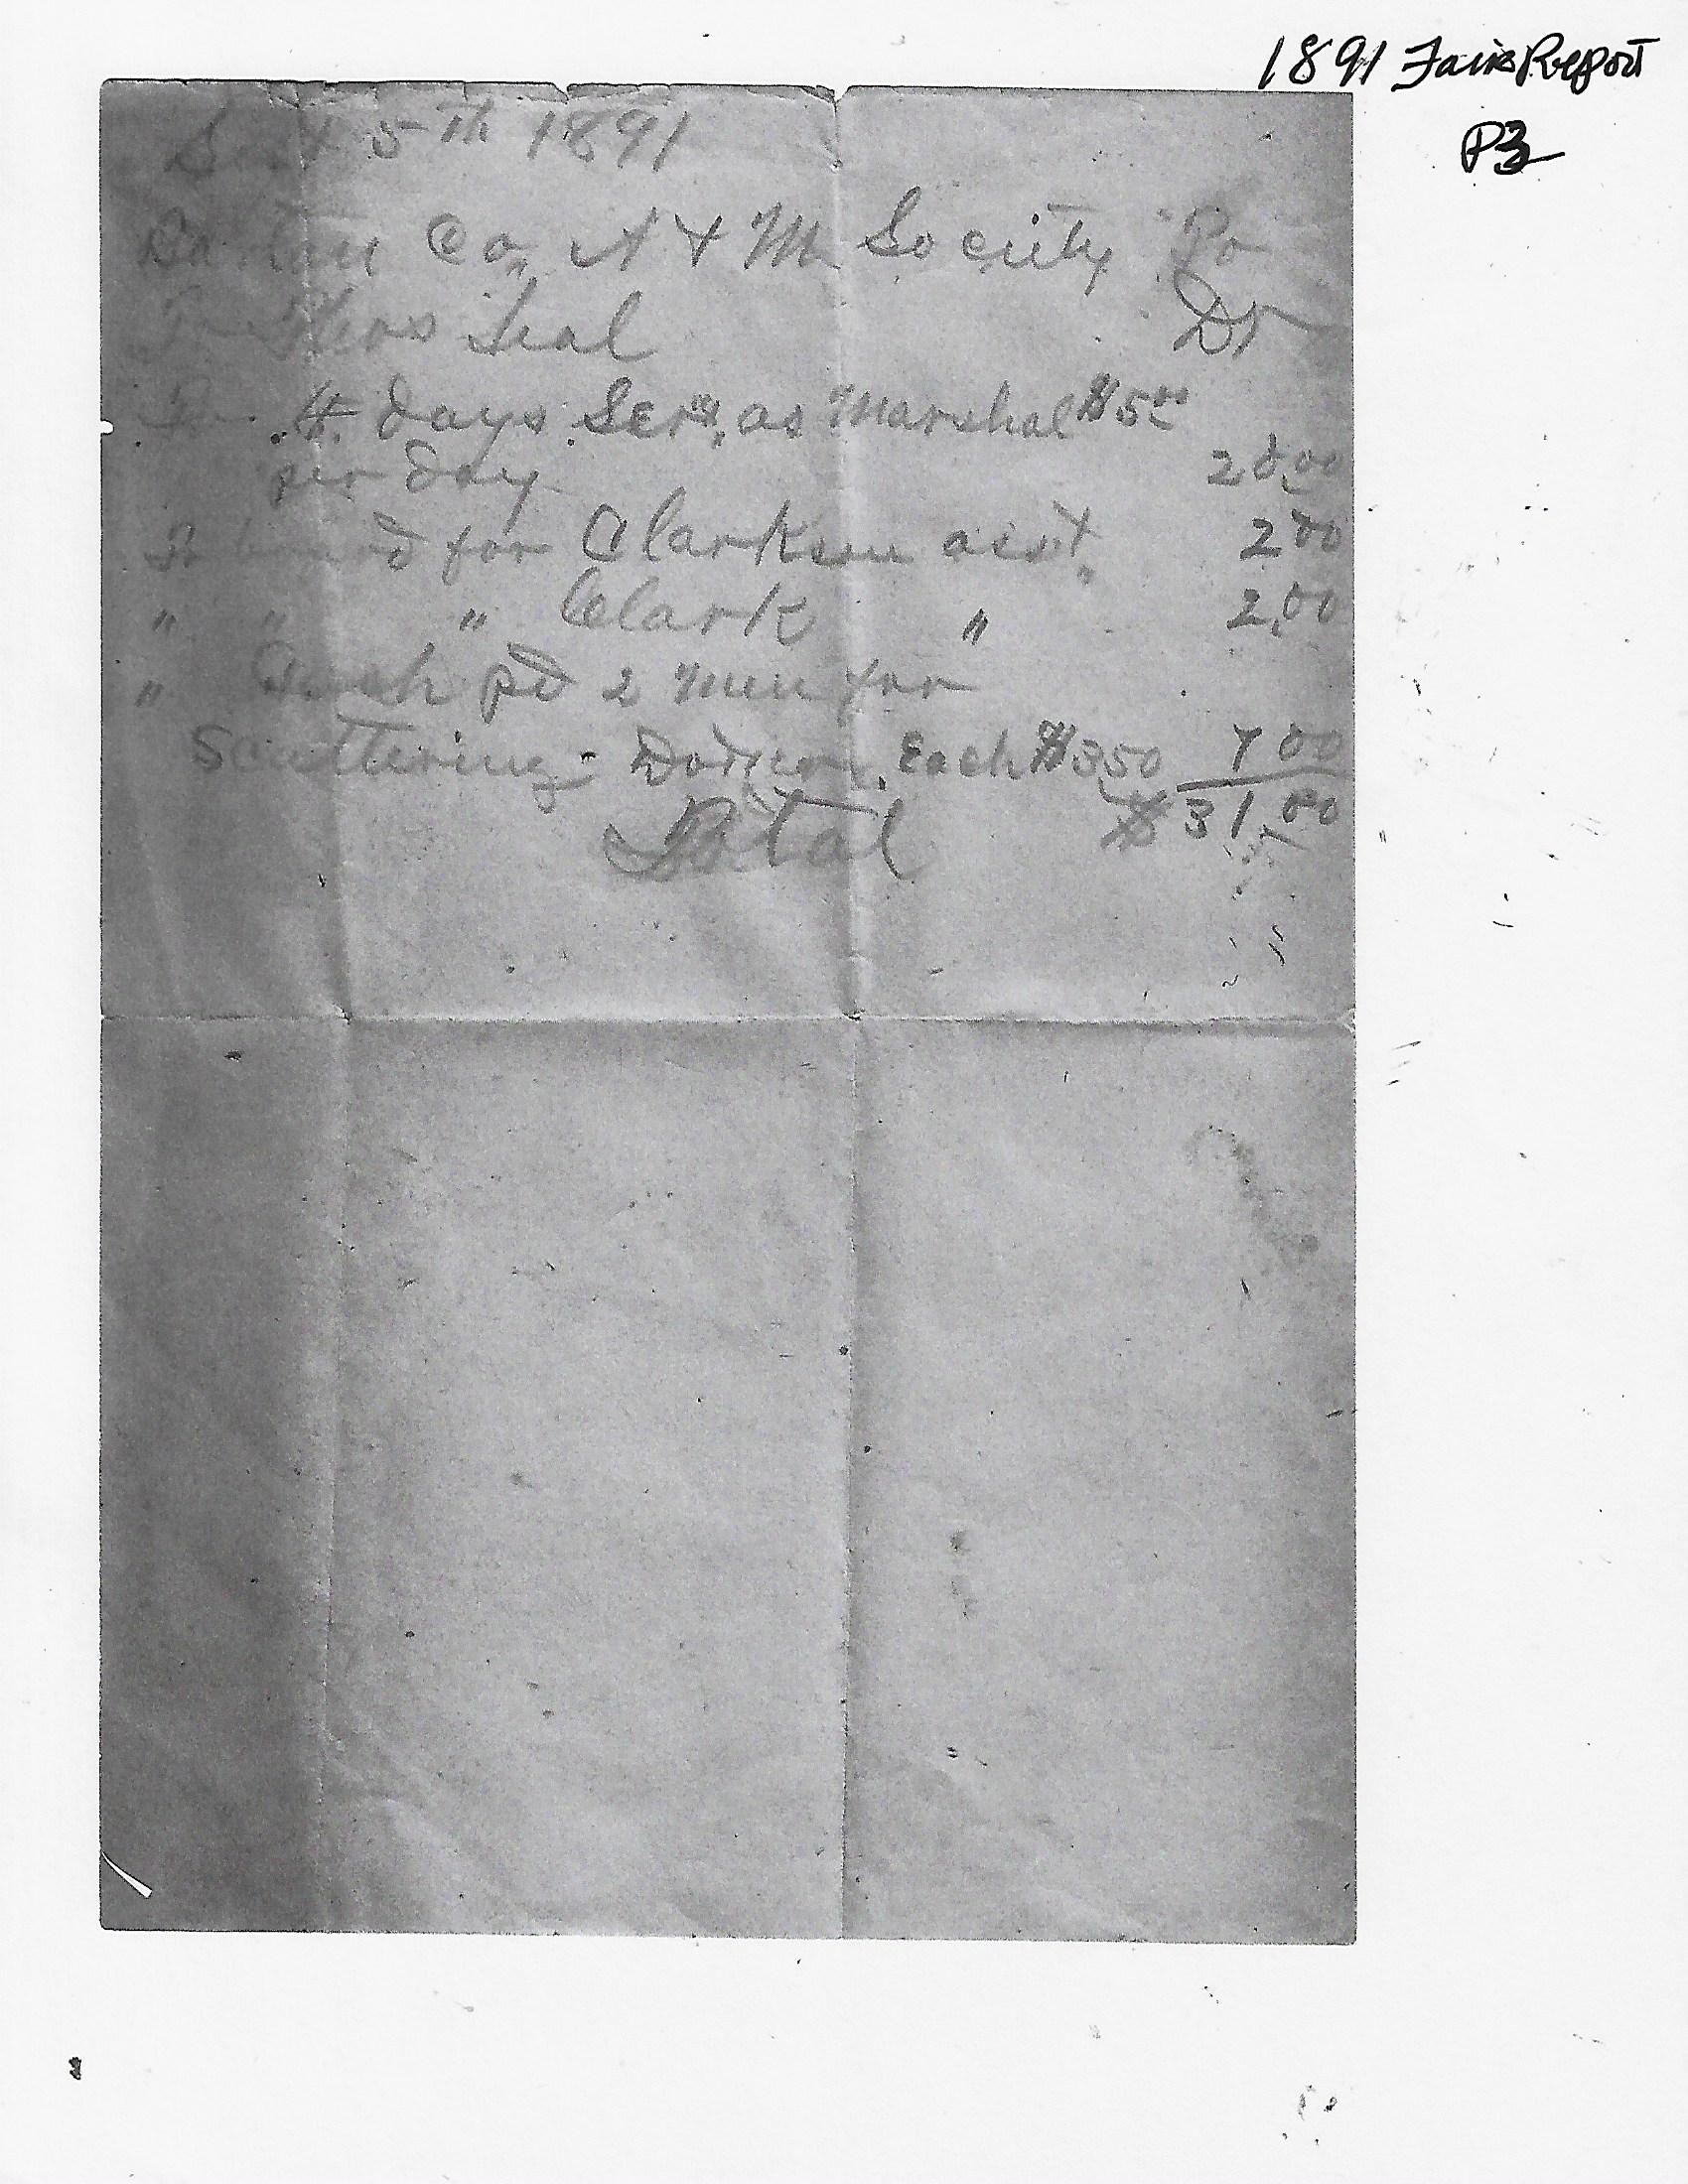 1891 Fair Report
P3
Sept 5th 1891
Co. A & M Society
Teal Dr
4 days Serv. as Marshal $5.00
per day 20.00
To board for Clarkson asst. 2 00
" " " Clark " 2.00
" Cash pd 2 men for
Scattering Each $3 50 7 00
Total $31 00